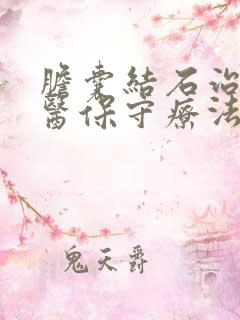 膽囊結石治
醫保守療法
鬼天爵